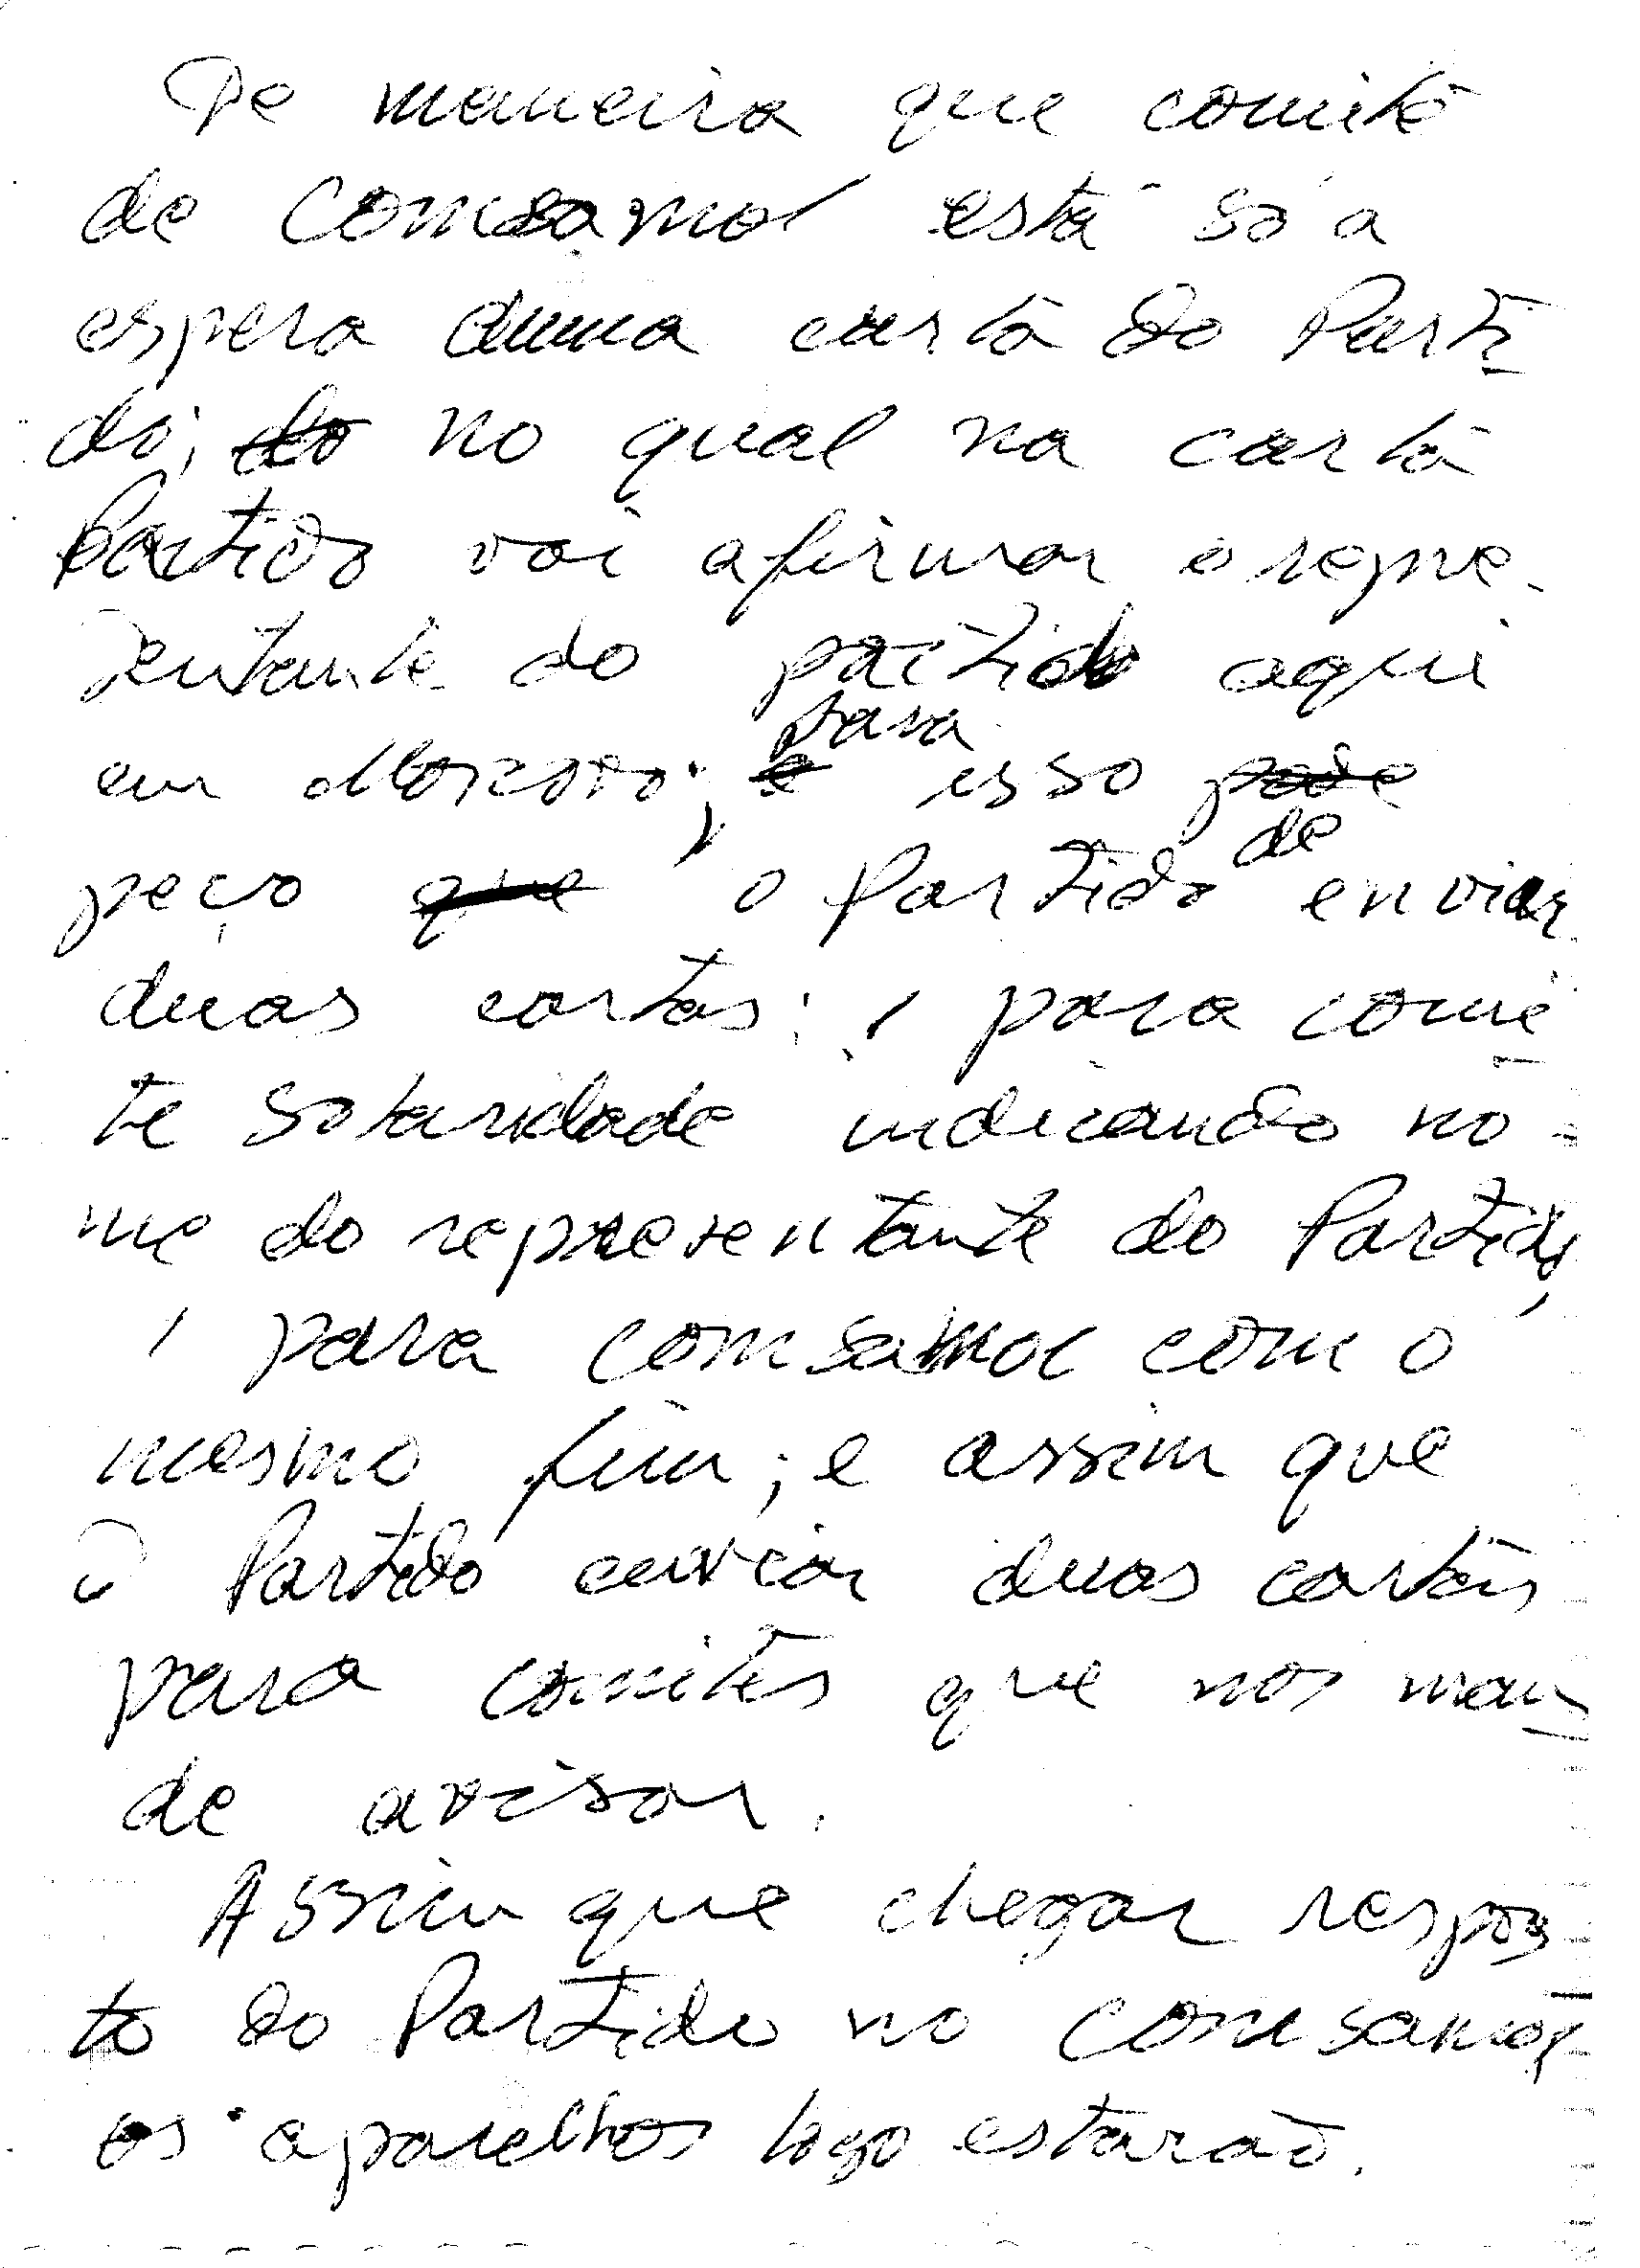 De maneira que comité
de Comsamol está só a
espera duma carta do Parti-
do; do no qual na carta
Partido vai afirmar o repre-
sentante do partido aqui
em Moscovo; e para isso pode
peço que o Partido de enviar
duas cartas: 1 para comi-
te Solaridade indicando no-
me do representante do Partido,
1 para comsamol com o
mesmo fim; e assim que
o Partido enviar duas cartas
para comités que nos man-
de avisar.
Assim que chegar respos-
ta do Partido no comsamol
os aparelhos logo estarão.